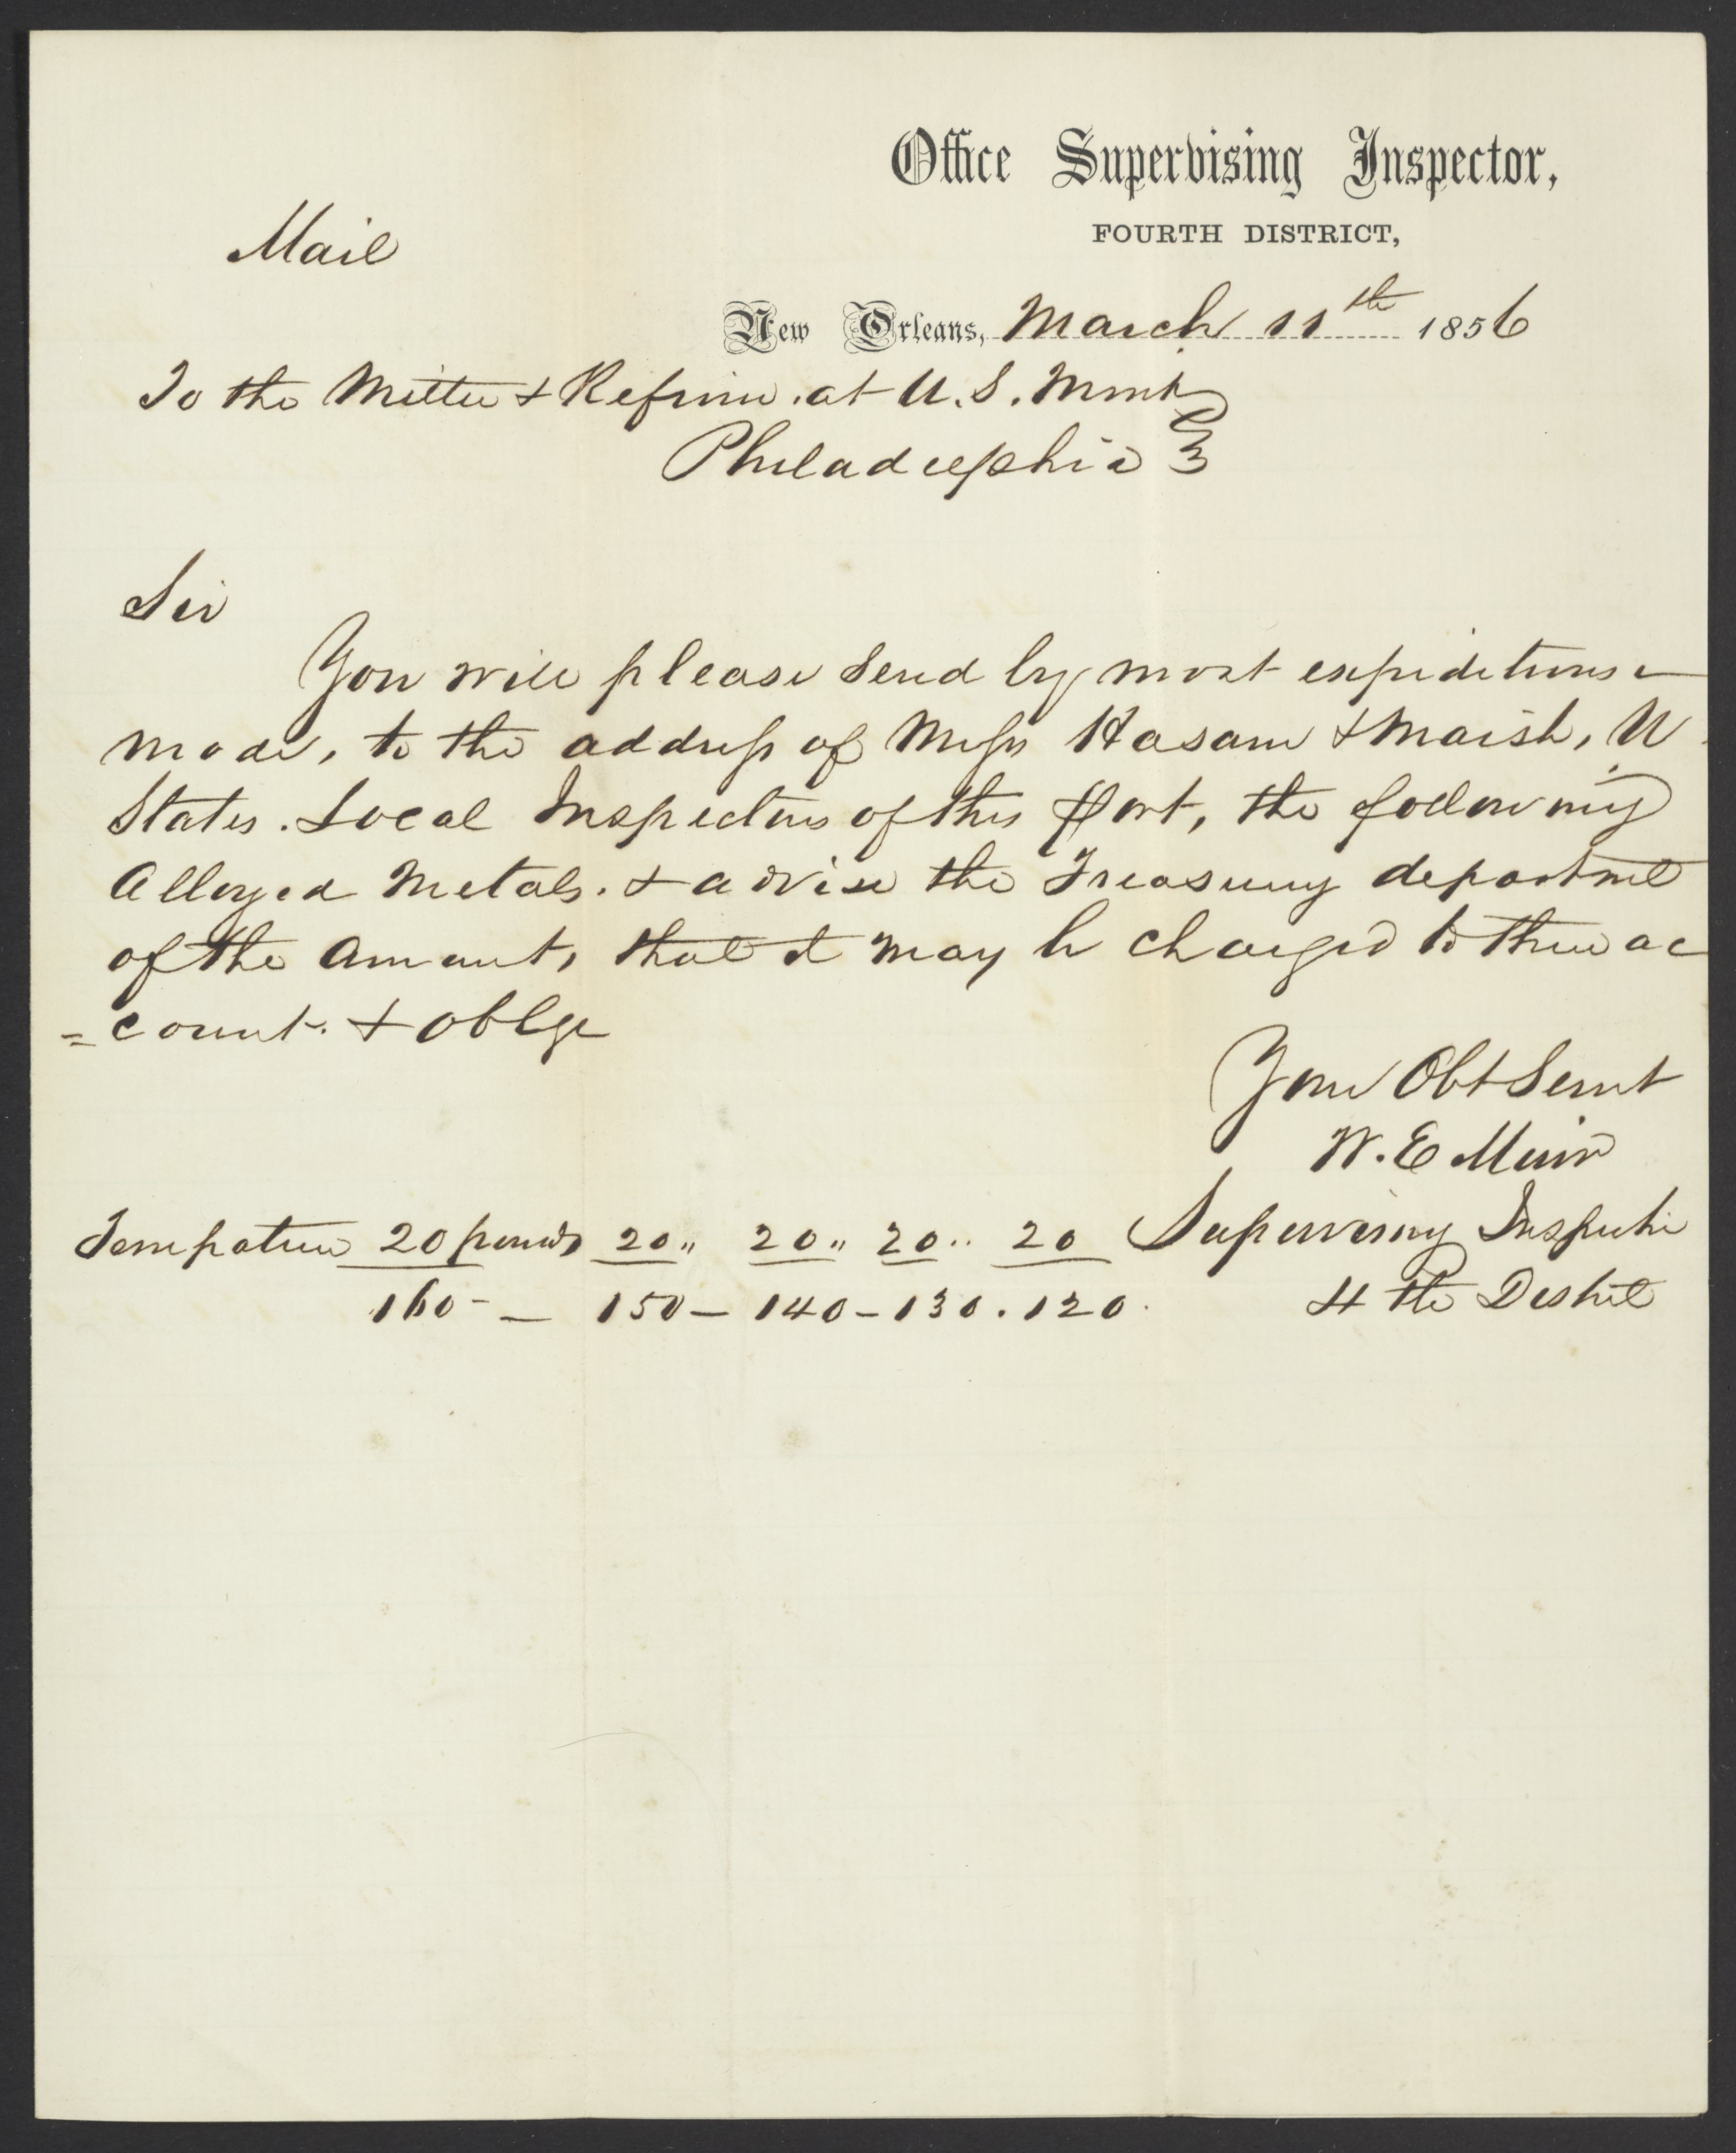 Office Supervising Inspector,
FOURTH DISTRICT,
Mail
New Orleans, March 11th 1856
To the Melter & Refiner. at U.S. Mint
Philadelphia
Sir
You will please send by most expeditious
mode, to the address of Messrs & Marsh, U
States. Local Inspectors of this Port, the following
Alloyed Metals. & advise the Treasury department
of the Amount, that it may be charged to their ac
=count. & oblge
Your Obt Servt
W. E Muir
Supervising Inspector
4 th District
Temperature 20 pounds 20 " 20 " 20 " 20
160 - — 150 — 140 - 130 . 120